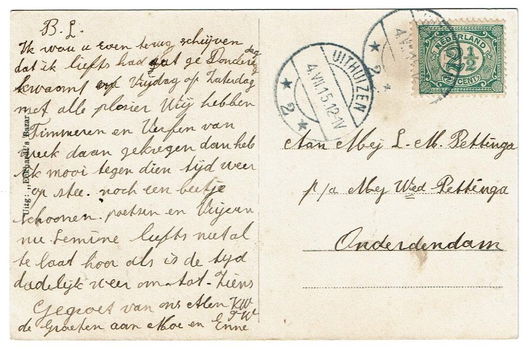 B. L.
Ik wou u Even terug schrijven
dat ik liefts had dat ge Donderdag
kwaamt of Vrijdag of Zaterdag
met alle plaier Wij hebben
Timmeren en Verfen van
week daan gekregen dan heb
ik mooi tegen dien tijd weer
op stee. noch een beetje
schoonen. poetsen en Vrijern
nu Lemine liefts niet al
te laat hoor als is de tyd
dadelijk weer om. tot. Ziens
Gegroet van ons Alen KW
de Groeten aan Moe en Enne
Uitg.
Bazar
UITHUIZEN
4.VII.15.12-1V
2
NEDERLAND
2½
CENT
Aan Mej L. M. Pettinga
p/a Mej Wed Pettinga
Onderdendam